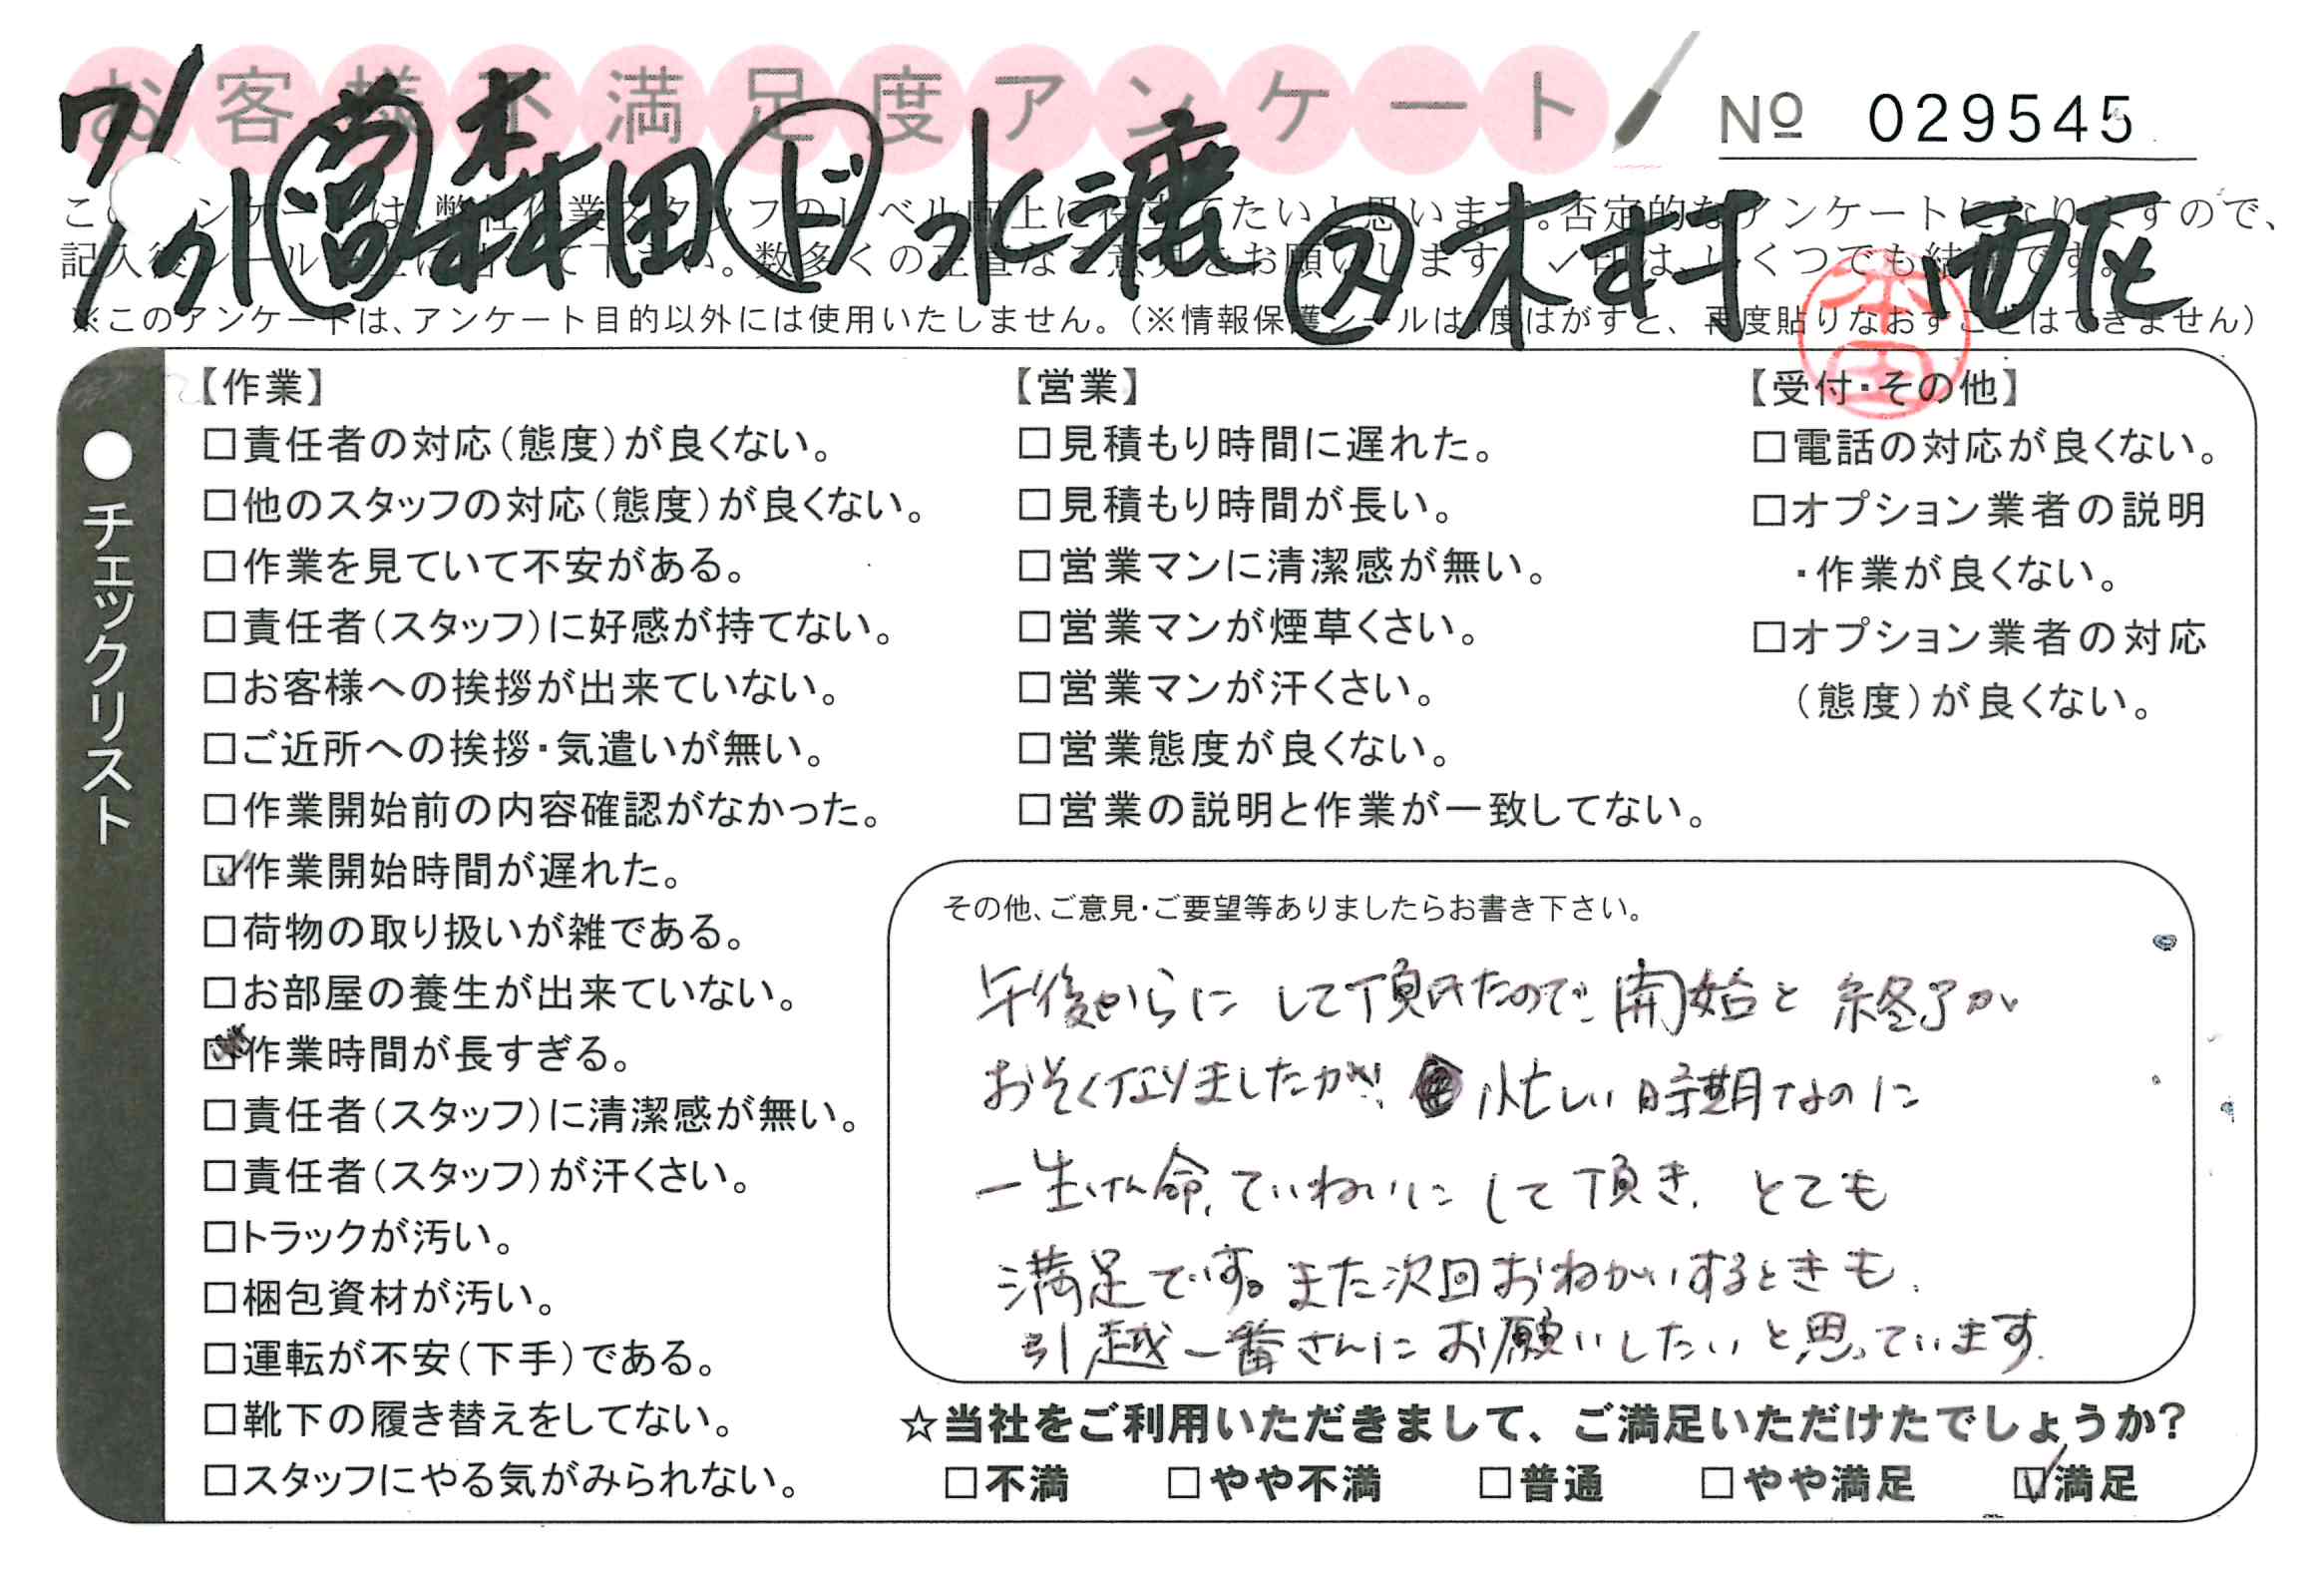 お客様不満足度アンケート
№ 029545
7/ 水 営 森田 ド 水 ㋜ 木村 西区
このアンケートは、弊社作業スタッフのレベル向上に役立てたいと思います。否定的なアンケートになりますので、
記入後シールを上に貼って下さい。数多くの正直なご意見をお願いします。✓印はいくつでも結構です。
※このアンケートは、アンケート目的以外には使用いたしません。（※情報保護シールは1度はがすと、再度貼りなおすことはできません）
本田
●チェックリスト
【作業】
□責任者の対応（態度）が良くない。
□他のスタッフの対応（態度）が良くない。
□作業を見ていて不安がある。
□責任者（スタッフ）に好感が持てない。
□お客様への挨拶が出来ていない。
□ご近所への挨拶・気遣いが無い。
□作業開始前の内容確認がなかった。
☑作業開始時間が遅れた。
□荷物の取り扱いが雑である。
□お部屋の養生が出来ていない。
□作業時間が長すぎる。
□責任者（スタッフ）に清潔感が無い。
□責任者（スタッフ）が汗くさい。
□トラックが汚い。
□梱包資材が汚い。
□運転が不安（下手）である。
□靴下の履き替えをしてない。
□スタッフにやる気がみられない。
【営業】
□見積もり時間に遅れた。
□見積もり時間が長い。
□営業マンに清潔感が無い。
□営業マンが煙草くさい。
□営業マンが汗くさい。
□営業態度が良くない。
□営業の説明と作業が一致してない。
【受付・その他】
□電話の対応が良くない。
□オプション業者の説明
・作業が良くない。
□オプション業者の対応
（態度）が良くない。
その他、ご意見・ご要望等ありましたらお書き下さい。
午後からに して頂けたので、開始と 終了が
おそくなりましたが、忙しい時期なのに
一生けん命、ていねいにして頂き、とても
満足です。また次回おねがいするときも、
引越一番さんにお願いしたいと思っています。
☆当社をご利用いただきまして、ご満足いただけたでしょうか？
□不満 □やや不満 □普通 □やや満足 ☑満足